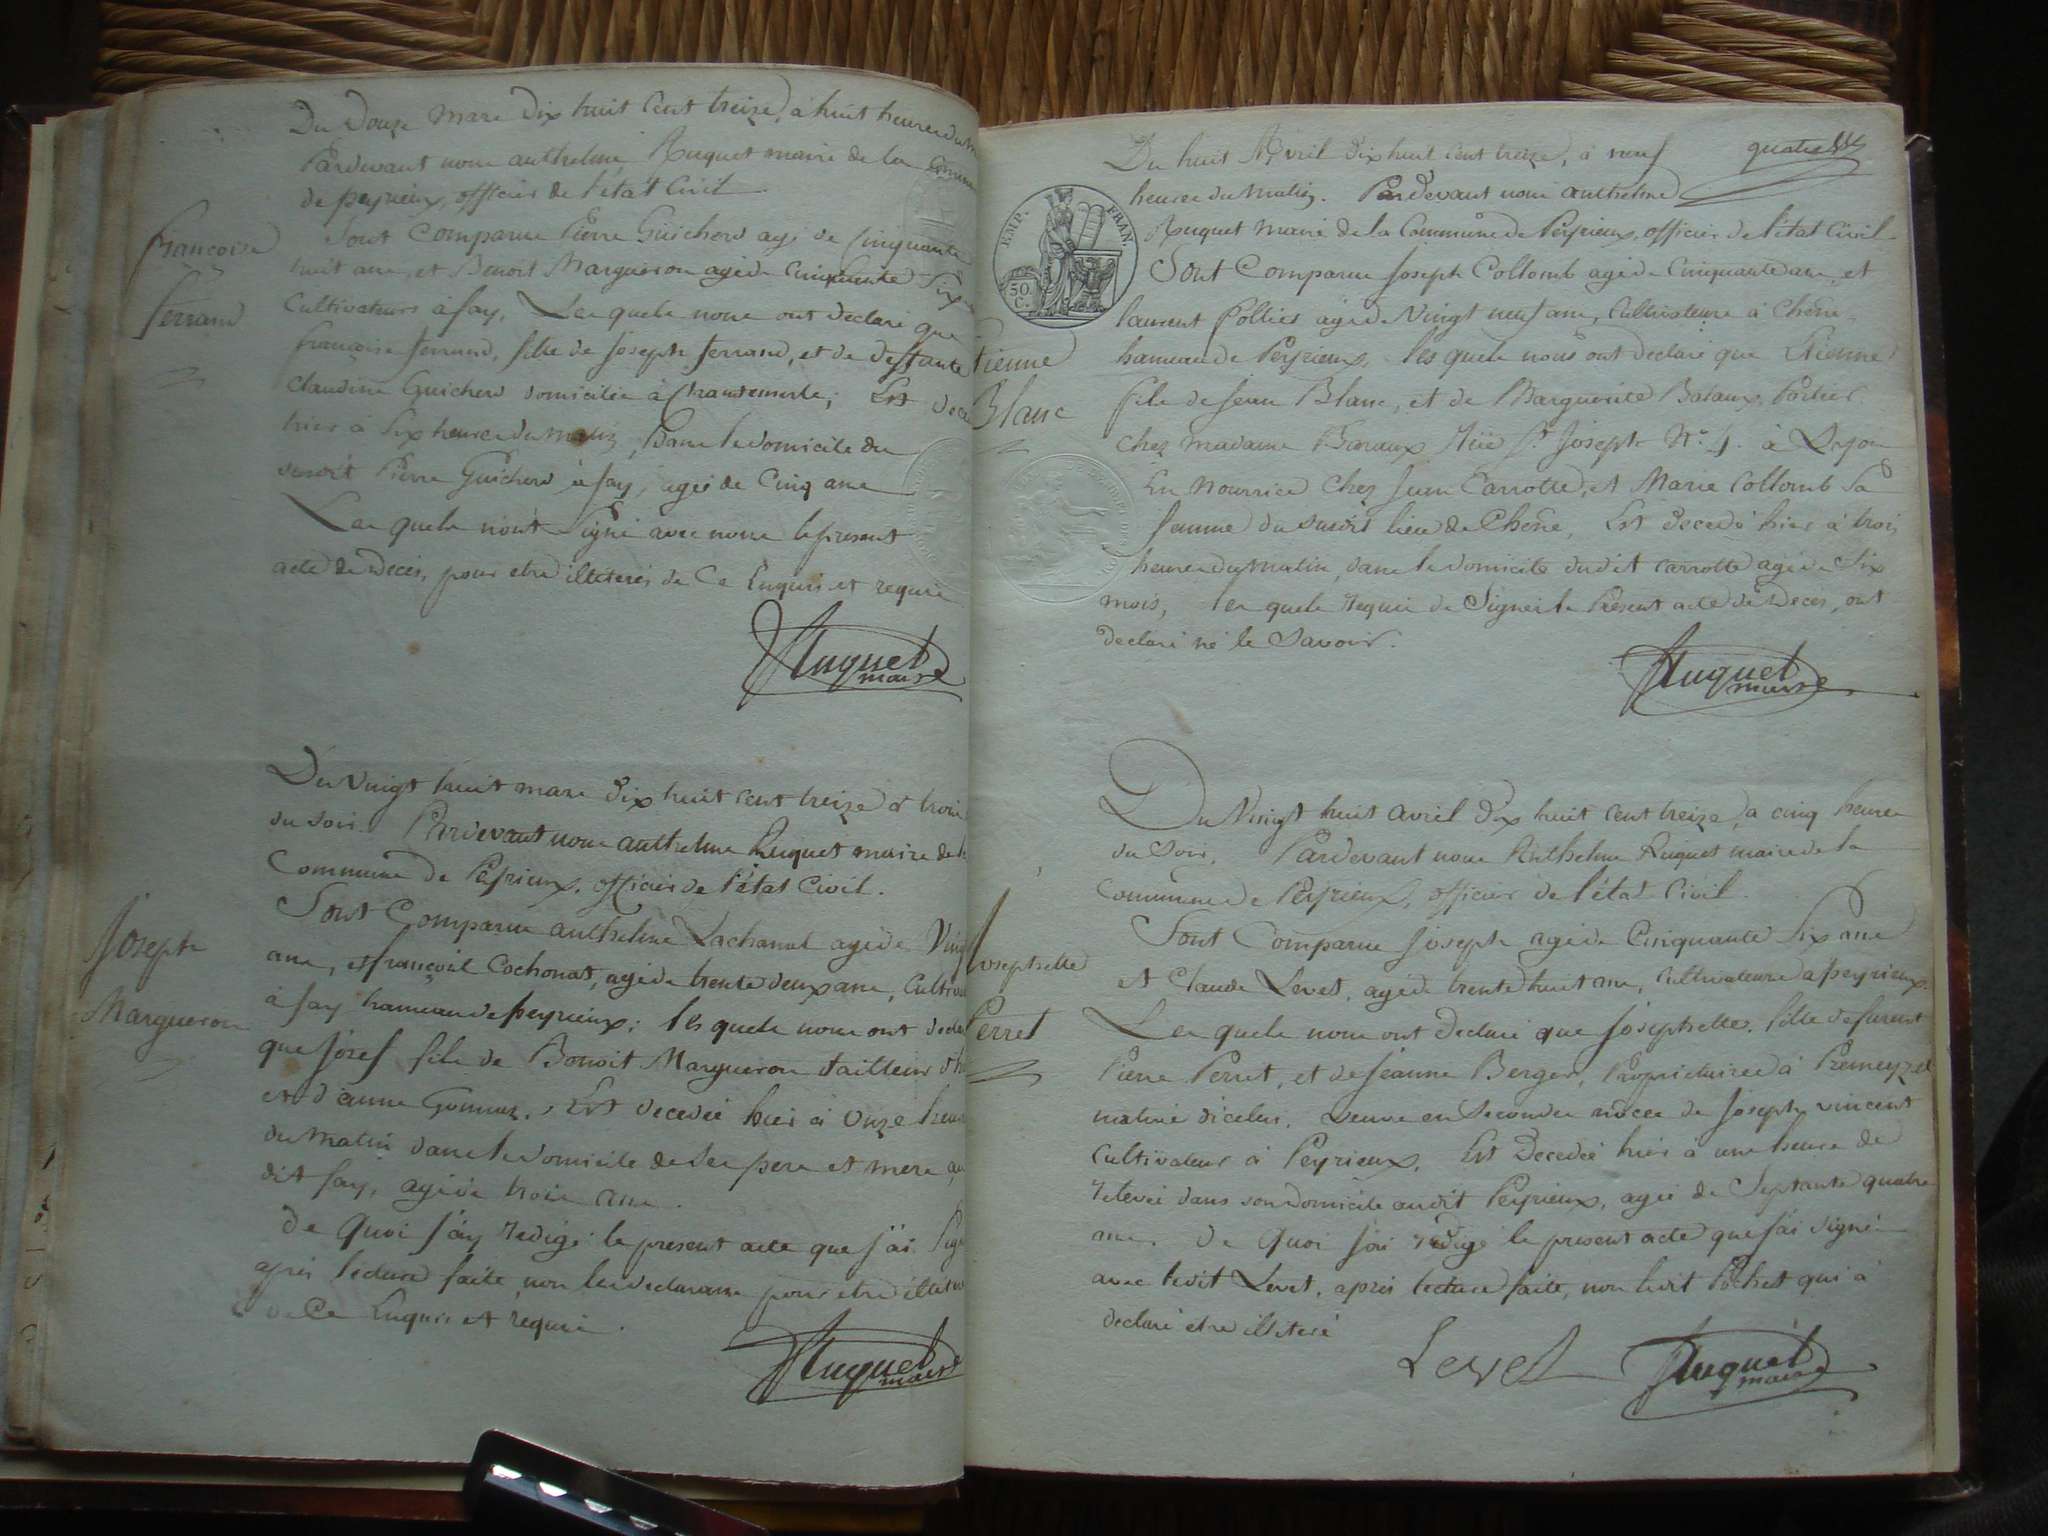 Du Douze mars dix huit cent treize, à huit heures du
Pardevant nous anthelme Ruquet maire de la commune
de peyrieux, officier de l'état Civil
Sont Comparus Pierre Guicherd agé de cinquante
huit ans, et Benoit Margueron agé de Cinquante Six
Cultivateurs à fay, Les quels nous ont declaré que
françoise ferrand, fille de Joseph ferrand, et de deffante
Claudine Guicherd domiciliée à ; Est
hier à Six heures du matin, Dans le domicile du
susdit Pierre Guicherd à fay, agée de Cinq ans
Les quels n'ont Signé avec nous le present
acte de Décès, pour etre illiterés de Ce Enquis et requis
Ruquet
maire
françoise
ferrand
Du vingt huit mars dix huit cent treize à trois
du soir. Pardevant nous anthelme Ruquet maire de la
Commune de Peÿrieux, officier de l'état Civil.
Sont Comparus anthelme Lachanal agé de Vingt
ans, et françois Cochonat, agé de trente deux ans, Cultiva
à fay hameau de peyrieux; les quels nous ont declar
que Josef fils de Benoit Margueron tailleur d'h
et d'anne , Est decedé hier à Onze heur
du Matin dans le domicile de Ses pere et mere, au
dit fay, agé de trois ans.
De Quoi j'ay redigé le present acte que j'ai Sig
après lecture faite, non les declarans pour etre illit
de Ce Enquis et requis.
Ruquet
maire
Joseph
Margueron
quatre
Du huit Avril dix huit cent treize, à neuf
heures du Matin. Pardevant nous anthelme
Ruquet Maire de la Commune de Peÿrieux, officier de l'état Civil
EMP. FRAN.
50
C.
Sont Comparus Joseph Collomb agé de Cinquante ans, et
laurent Pollies agé de Vingt neuf ans, Cultivateurs à Chêne
hameau de Peÿrieux, les quels nous ont declaré que Etienne
fils de Jean Blanc, et de Marguerite Bataux, Portier
Chez Madame Rüe St. Joseph N° 4. à Lyon
En Nourrice Chez Jean Carrotte, et Marie Collomb Sa
femme du susdit lieu de Chêne, Est decedé hier à trois
heures du Matin, dans le domicile dudit Carrotte agé de Six
mois, les quels requis de Signer le Présent acte de Décès, ont
declaré né le Savoir.
Ruquet
maire
Etienne
Blanc
Du Vingt huit avril dix huit cent treize, à cinq heures
du Soir, Pardevant nous Anthelme Ruquet maire de la
Commune de Peÿrieux, officier de l'état Civil.
Sont Comparus Joseph agé de Cinquante Six ans
et Claude Levet, agé de trente huit ans, Cultivateurs à peyrieux
Les quels nous ont Declaré que Josephette, fille de furent
Pierre Perret, et de Jeanne Berger, Propriétaires à Premeyzel
native d'icelui, veuve en Secondes nôces de Joseph vincent
Cultivateur à Peÿrieux, Est Decedée hier à une heure de
relevée dans son domicile audit Peÿrieux, agée de Septante quatre
ans. De Quoi j'ai rédigé le present acte que j'ai signé
avec ledit Levet, après lecture faite, non ledit qui à
declaré etre illiteré
Levet
Ruquet
maire
Josephette
Perret